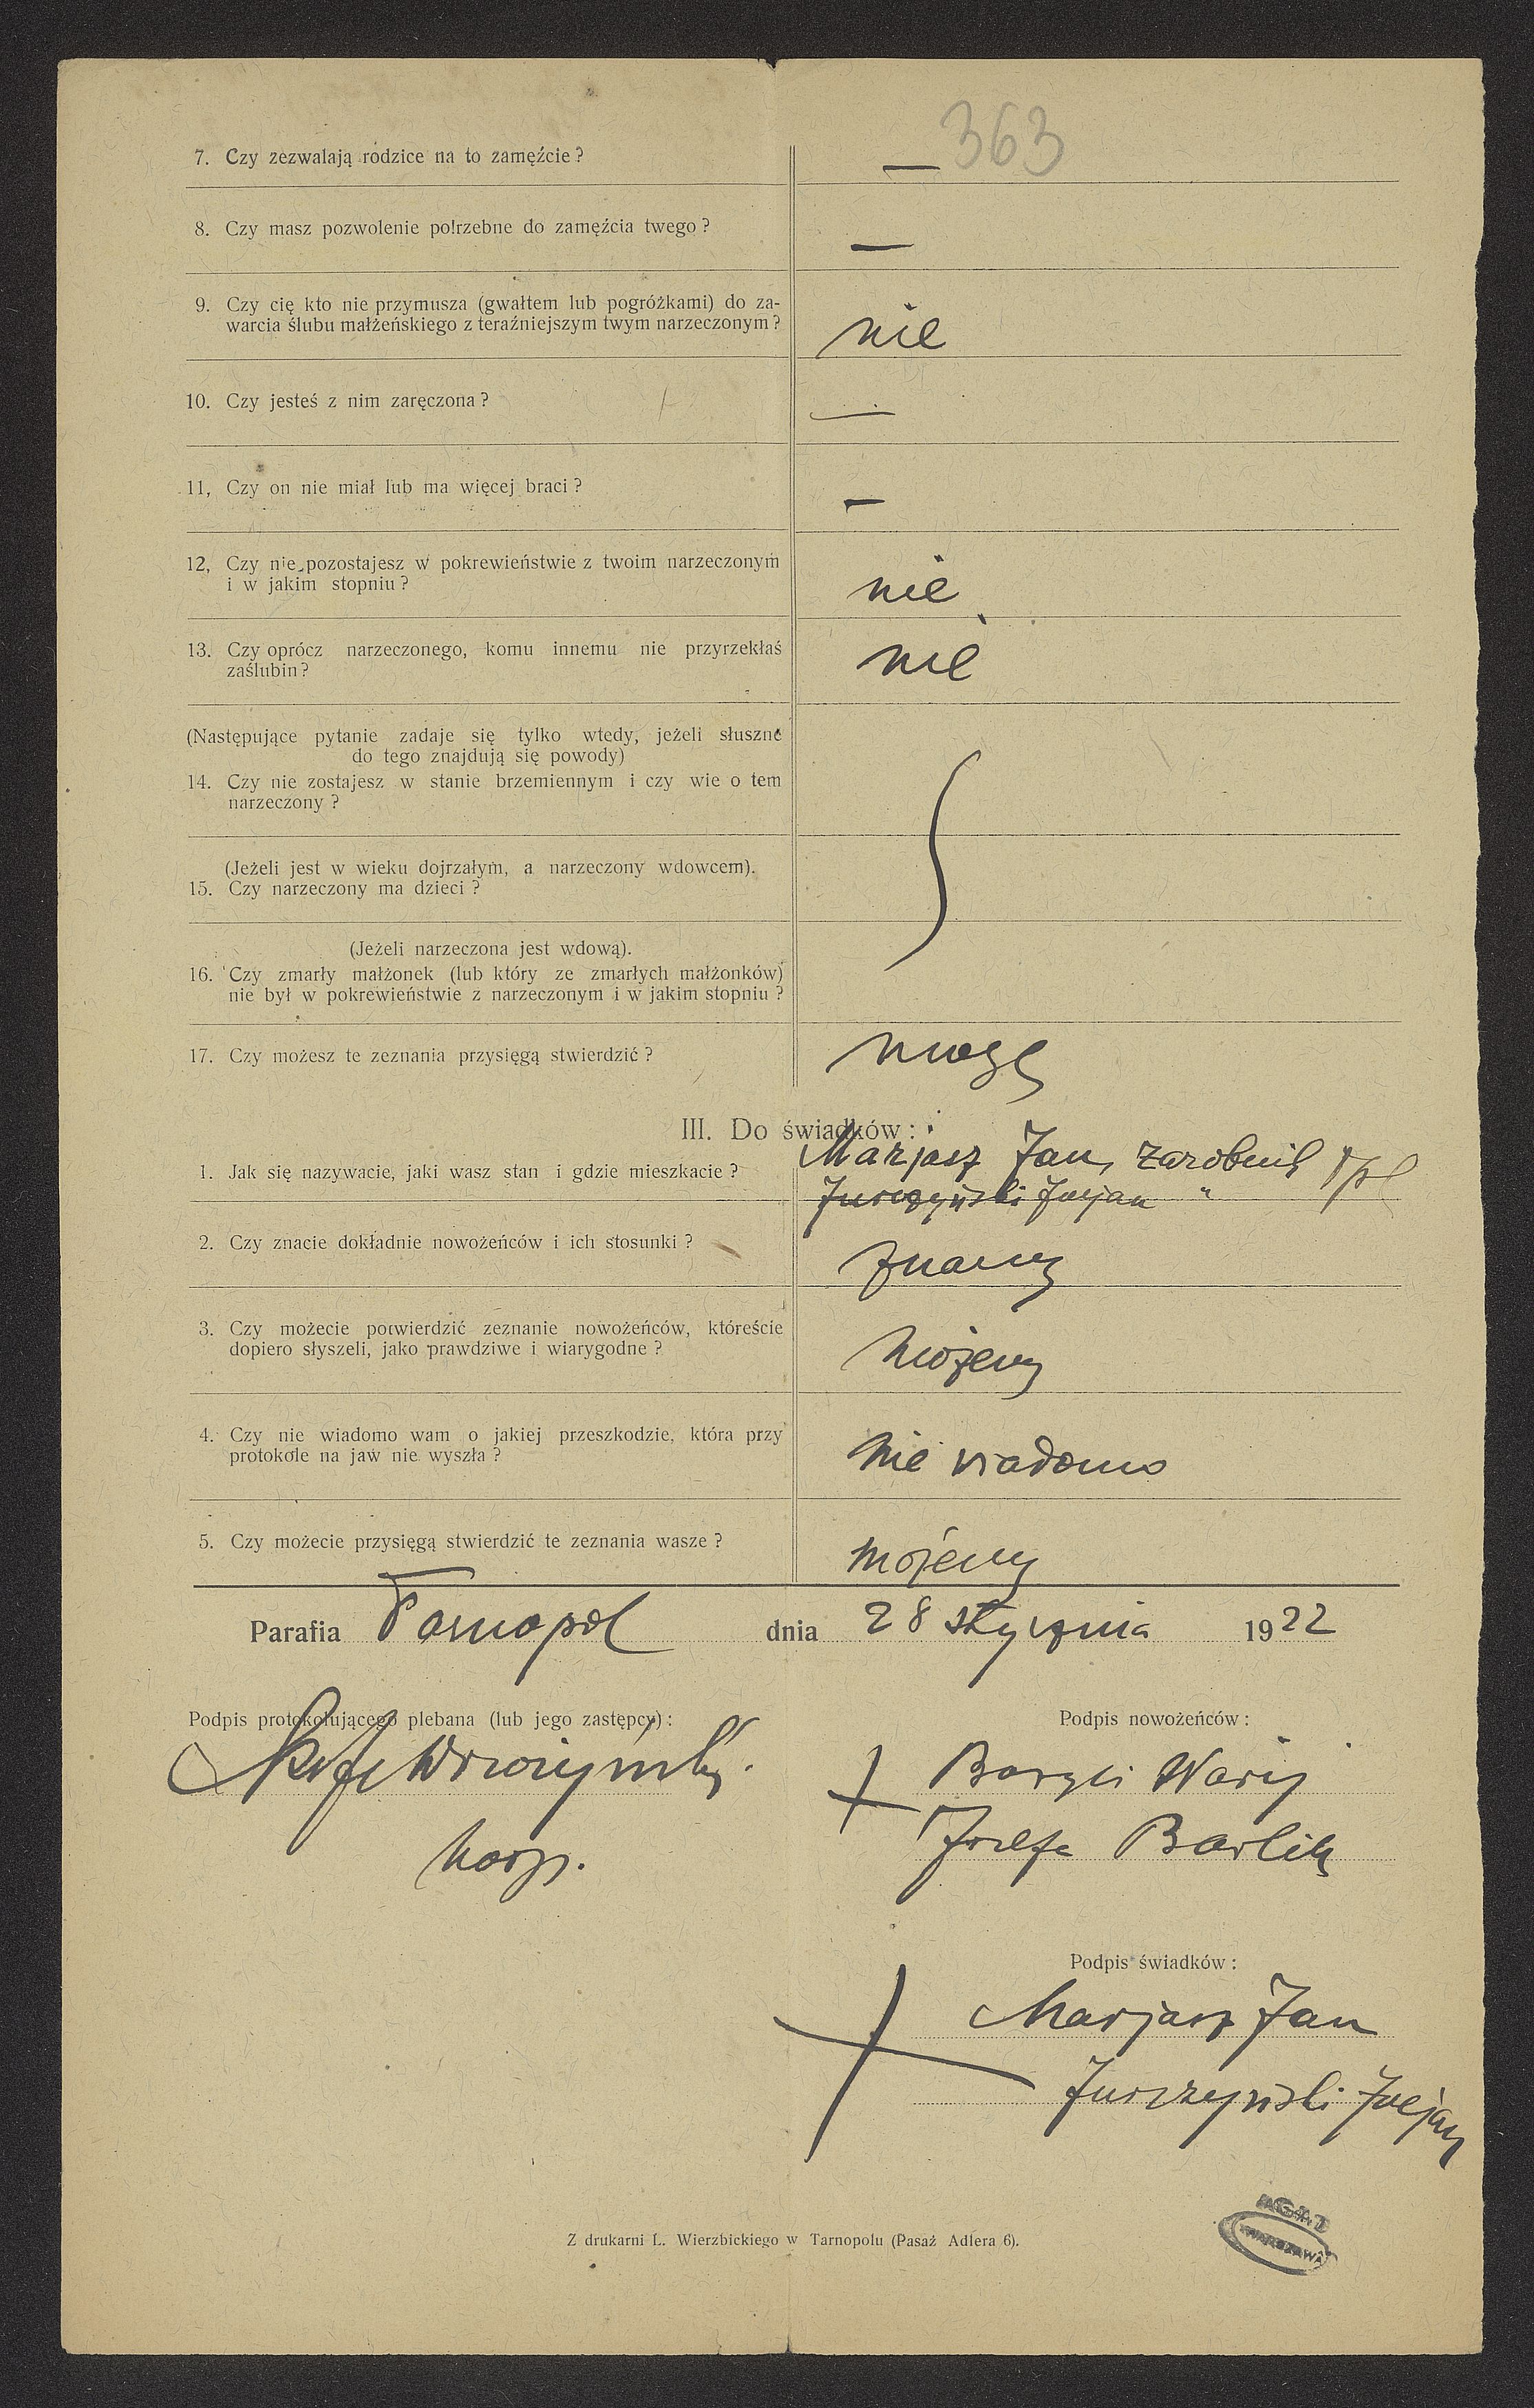 363
7. Czy zezwalają rodzice na to zamęźcie? —
8. Czy masz pozwolenie potrzebne do zamęźcia twego? —
9. Czy cię kto nie przymusza (gwałtem lub pogróżkami) do za-
warcia ślubu małżeńskiego z teraźniejszym twym narzeczonym? nie
10. Czy jesteś z nim zaręczona? —
11, Czy on nie miał lub ma więcej braci? —
12, Czy nie pozostajesz w pokrewieństwie z twoim narzeczonym
i w jakim stopniu? nie
13. Czy oprócz narzeczonego, komu innemu nie przyrzekłaś
zaślubin? nie
(Następujące pytanie zadaje się tylko wtedy, jeżeli słuszne
do tego znajdują się powody)
14. Czy nie zostajesz w stanie brzemiennym i czy wie o tem
narzeczony?
(Jeżeli jest w wieku dojrzałym, a narzeczony wdowcem).
15. Czy narzeczony ma dzieci?
(Jeżeli narzeczona jest wdową).
16. Czy zmarły małżonek (lub który ze zmarłych małżonków)
nie był w pokrewieństwie z narzeczonym i w jakim stopniu?
17. Czy możesz te zeznania przysięgą stwierdzić? mogę
III. Do świadków:
1. Jak się nazywacie, jaki wasz stan i gdzie mieszkacie? Marjasz Jan, zarobnik Tpl
Jurczyński Juljan "
2. Czy znacie dokładnie nowożeńców i ich stosunki? znamy
3. Czy możecie potwierdzić zeznanie nowożeńców, któreście
dopiero słyszeli, jako prawdziwe i wiarygodne? możemy
4. Czy nie wiadomo wam o jakiej przeszkodzie, która przy
protokole na jaw nie wyszła? nie wiadomo
5. Czy możecie przysięgą stwierdzić te zeznania wasze? możemy
Parafia Tarnopol dnia 28 stycznia 1922
Podpis protokołującego plebana (lub jego zastępcy): Podpis nowożeńców:
Józefa Barlik
Podpis świadków:
Marjasz Jan
Jurczyński Juljan
WARSZAWA
Z drukarni L. Wierzbickiego w Tarnopolu (Pasaż Adlera 6).